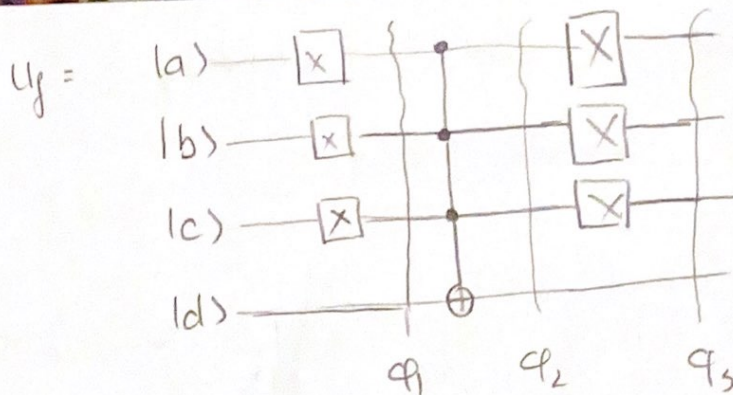 U_f = |a> X X
|b> X X
|c> X X
|d>
φ₁ φ₂ φ₃